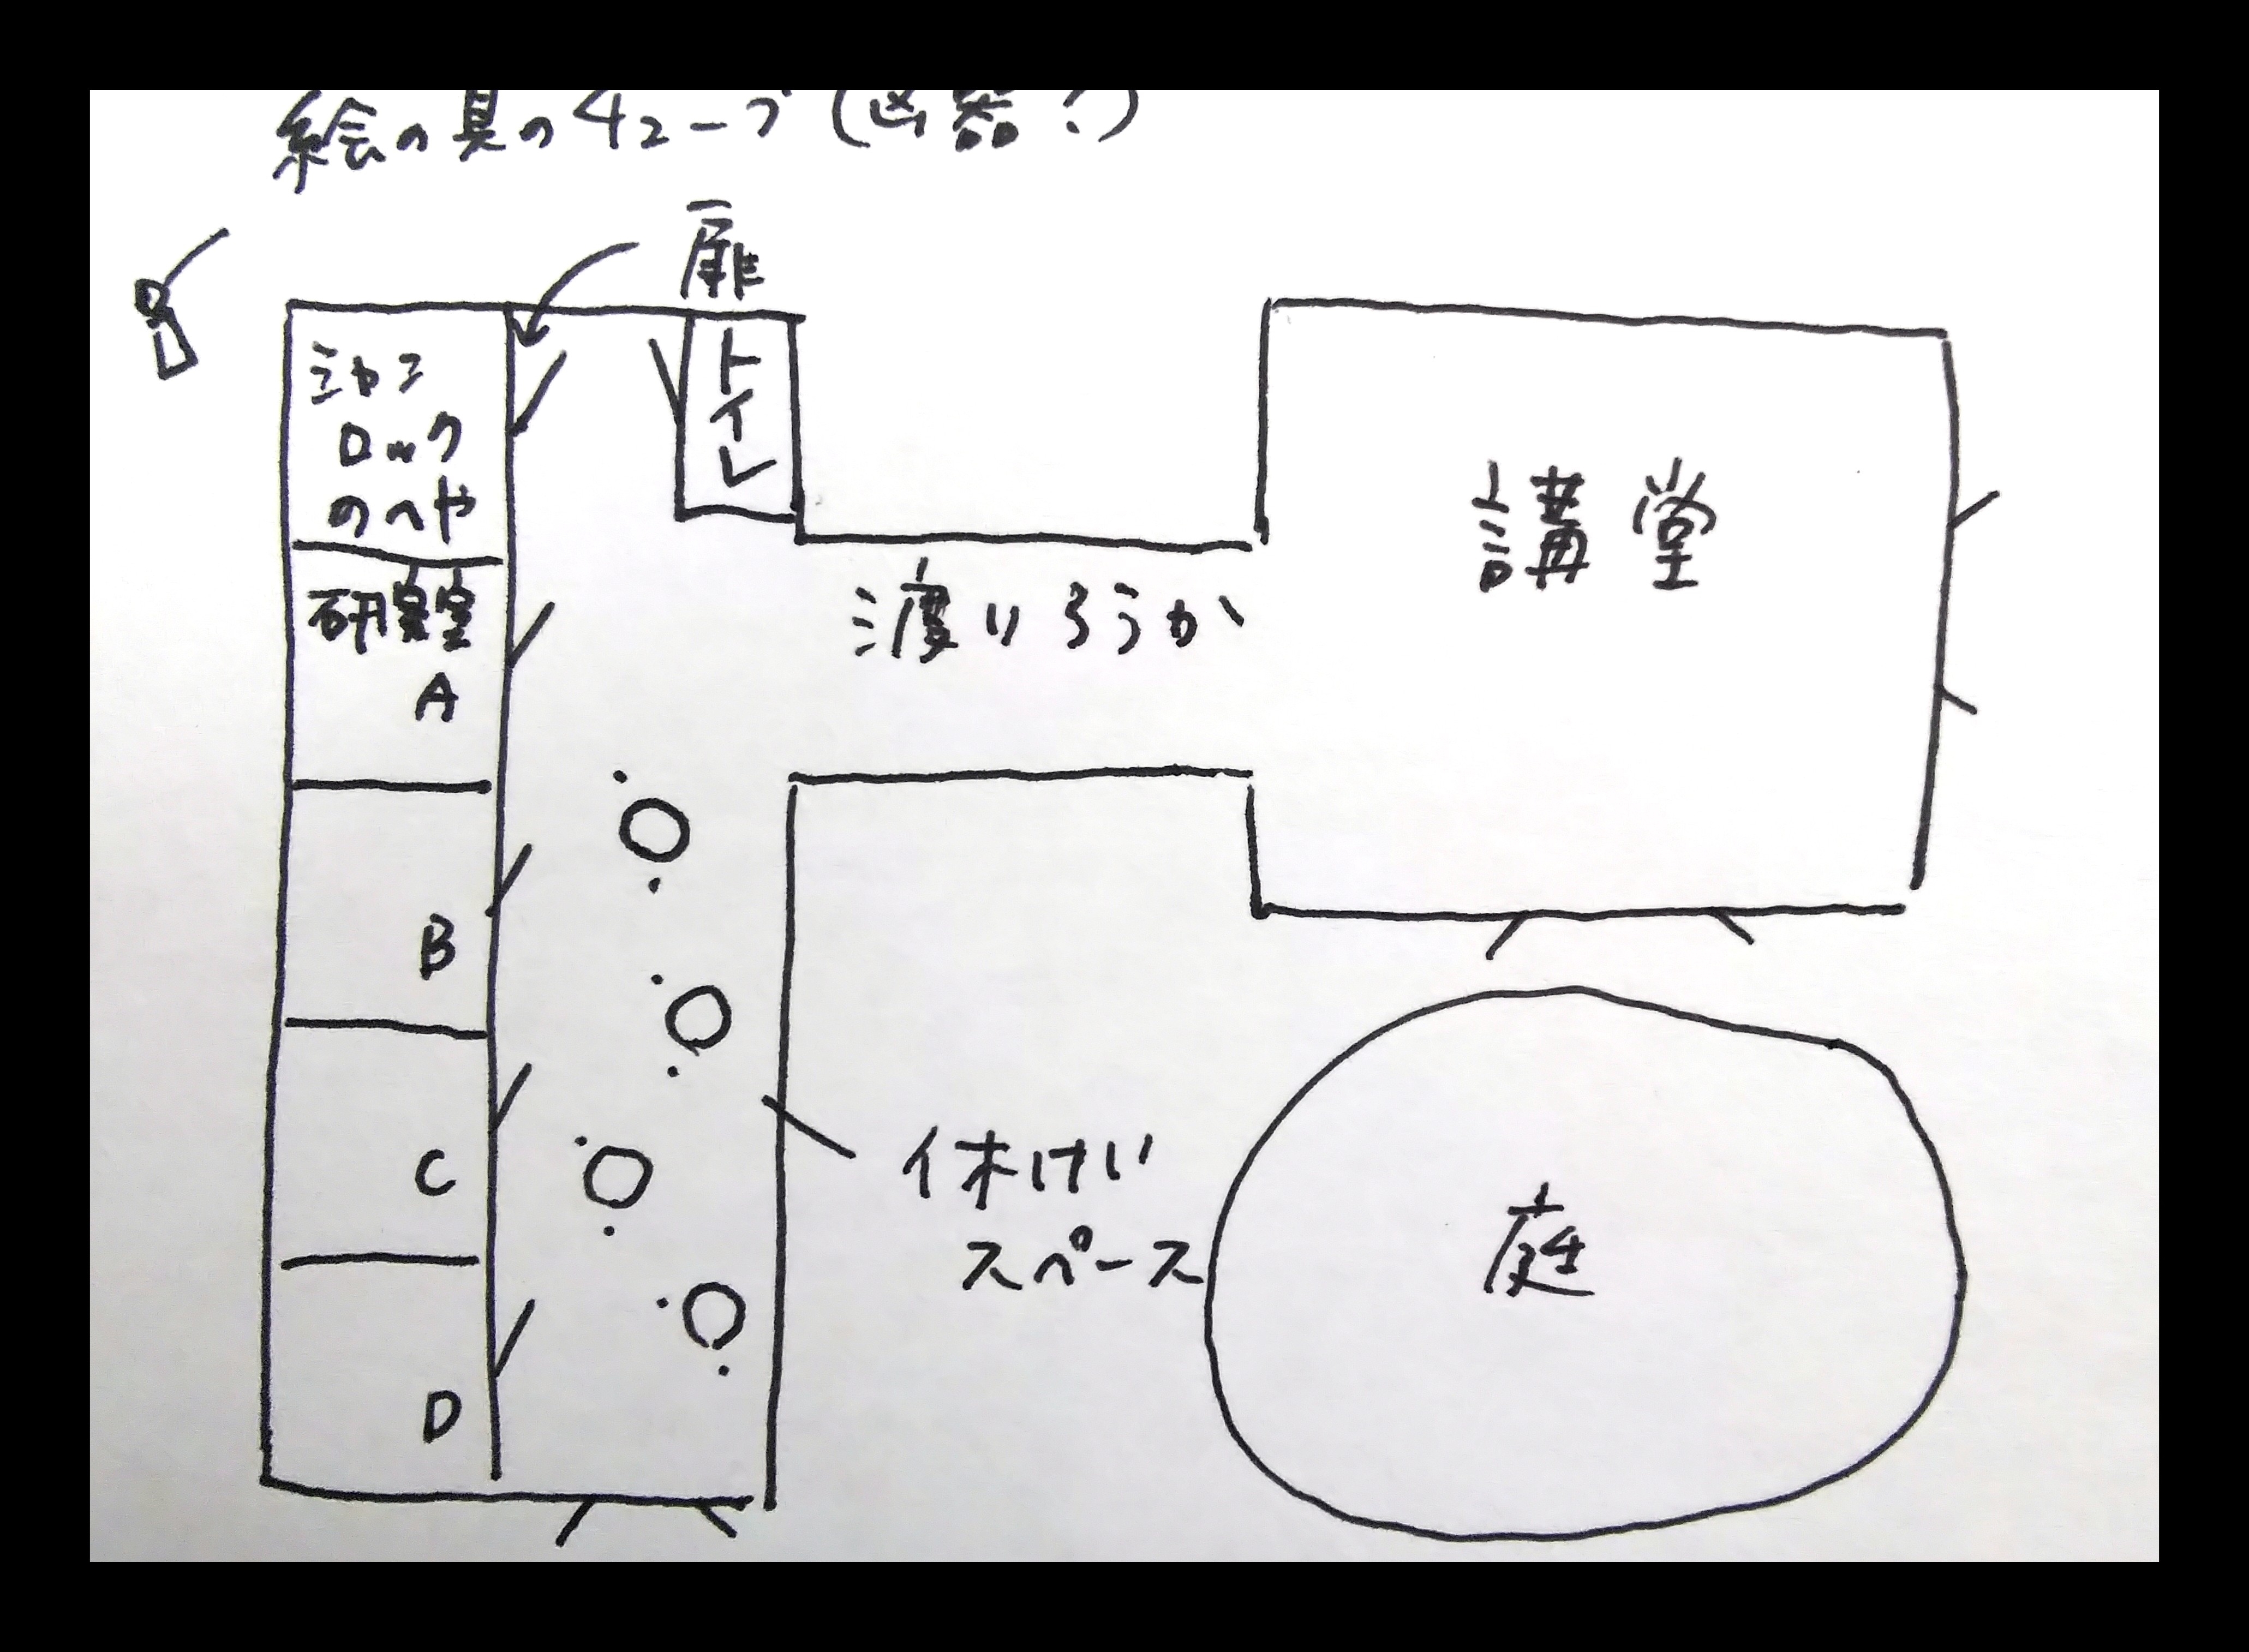 絵の具のチューブ(凶器?)
扉
トイレ
ミヤコ
ロック
のへや
研究室
A
B
C
D
渡りろうか
講堂
休けい
スペース
庭